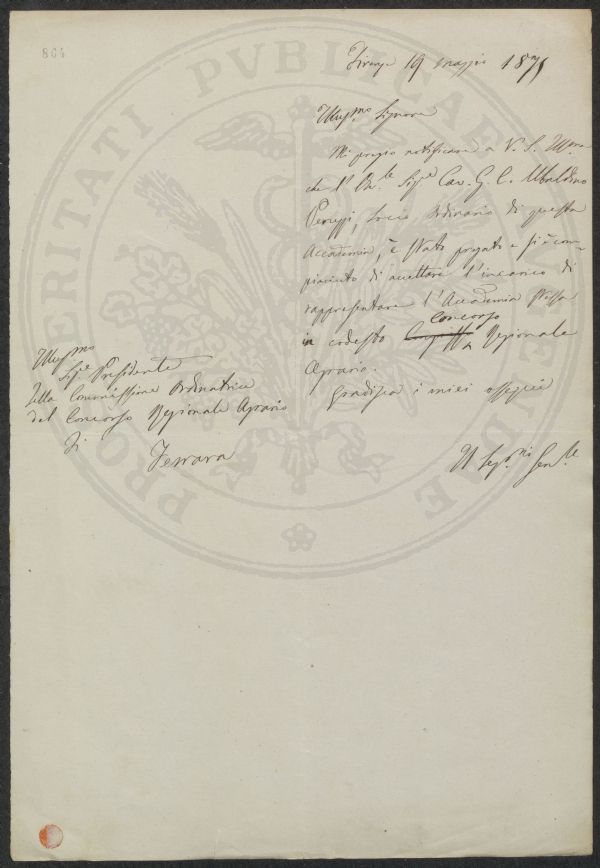 864
Firenze 19 maggio 1875
Illussmo Signore
Mi pregio notificare a V. S. Illma
che l'On.le Sigre Cav. G. C. Ubaldino
Peruzzi, Socio Ordinario di questa
Accademia, è stato pregato e si è com-
piaciuto di accettare l'incarico di
rappresentare l'Accademia stessa
in codesto Concorso Regionale
Agrario.
Gradisca i miei ossequi
Il Seg.rio Gen.le
Illussmo
Sigre Presidente
della Commissione Ordinatrice
del Concorso Regionale Agrario
di Ferrara
PROSPERITATI PVBLICAE AVGENDAE